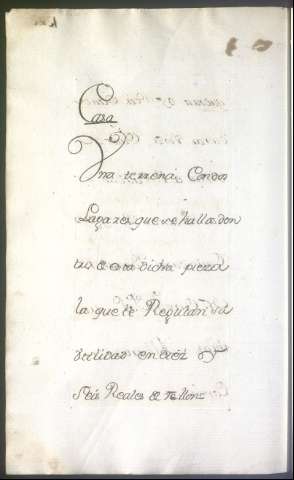 Casa
Vna terrena, Con dos
Laga res, que se halla den
tro de esta dicha pieza
la que le Regulan su
vtilidad en diez y
seis Reales de vellon=